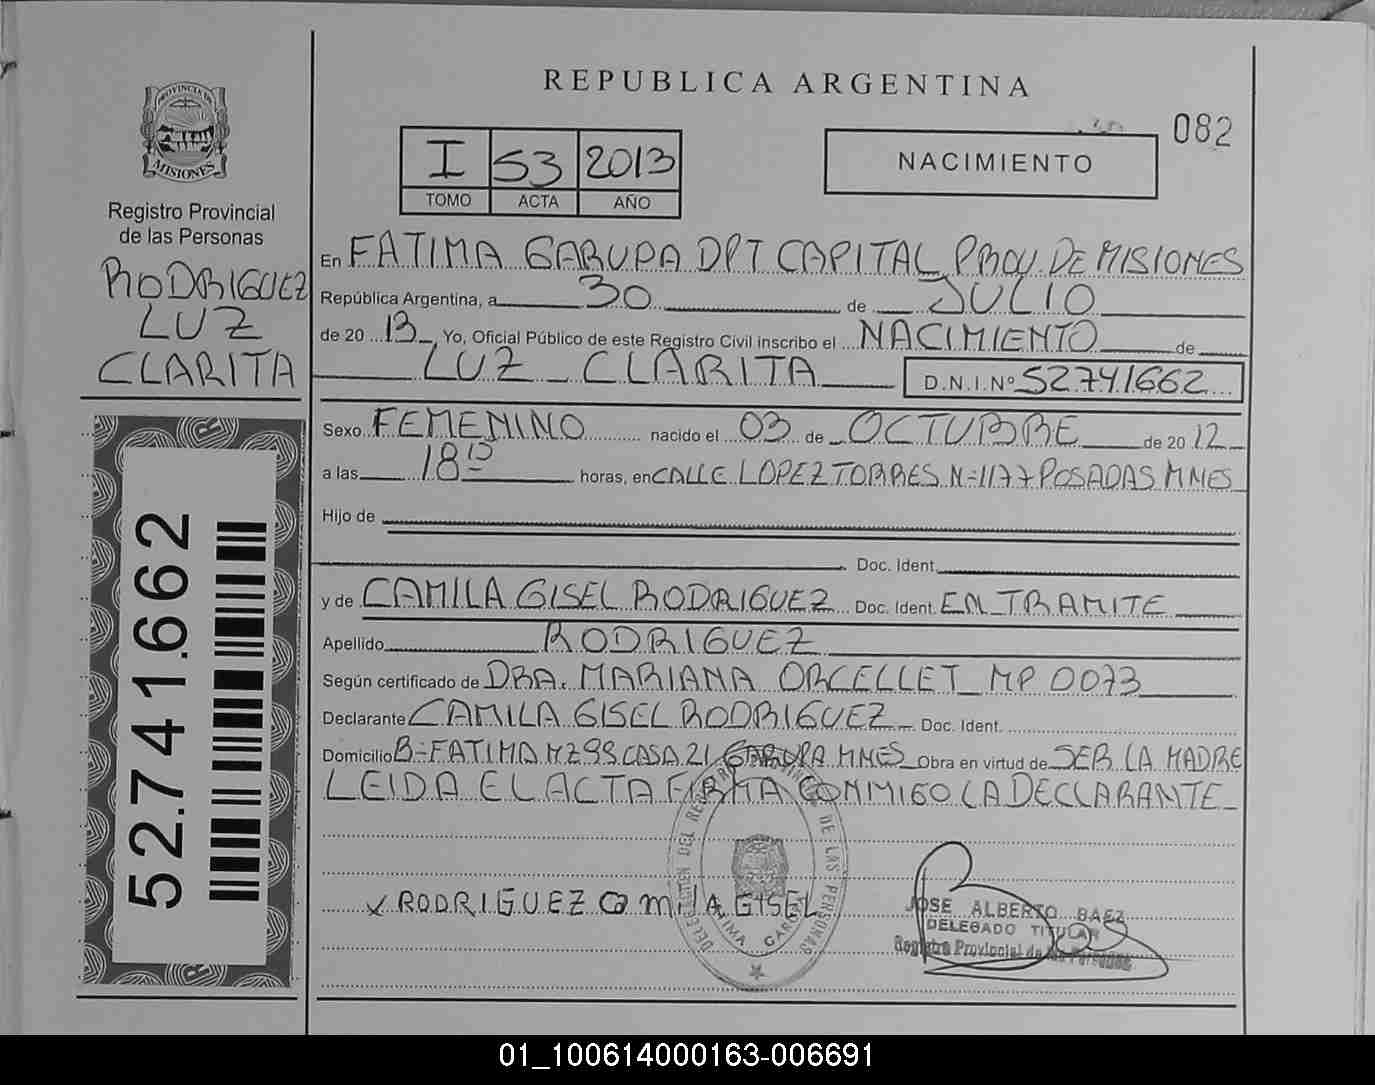 REPUBLICA ARGENTINA
082
PROVINCIA DE
MISIONES
Registro Provincial
de las Personas
RODRIGUEZ
LUZ
CLARITA
52.741.662
I 53 2013
TOMO ACTA AÑO
NACIMIENTO
En FATIMA GARUPA DPT CAPITAL PROV. DE MISIONES
República Argentina, a 30 de JULIO
de 20 13 Yo, Oficial Público de este Registro Civil inscribo el NACIMIENTO de
LUZ CLARITA D.N.I.Nº 52.741.662
Sexo FEMENINO nacido el 03 de OCTUBRE de 20 12
a las 18 horas, en CALLE LOPEZ TORRES Nº 1177 POSADAS MNES
Hijo de
Doc. Ident.
y de CAMILA GISEL RODRIGUEZ Doc. Ident. EN TRAMITE
Apellido RODRIGUEZ
Según certificado de DRA. MARIANA ORCELLET MP 0073
Declarante CAMILA GISEL RODRIGUEZ Doc. Ident.
Domicilio Bº FATIMA MZ 99 CASA 21 GARUPA MNES Obra en virtud de SER LA MADRE
LEIDA EL ACTA FIRMA CONMIGO LA DECLARANTE
RODRIGUEZ CamilA GISEL
DELEGACION DEL REGISTRO PROVINCIAL DE LAS PERSONAS
FATIMA GARUPA
JOSE ALBERTO BAEZ
DELEGADO TITULAR
Registro Provincial de las Personas
01_100614000163-006691